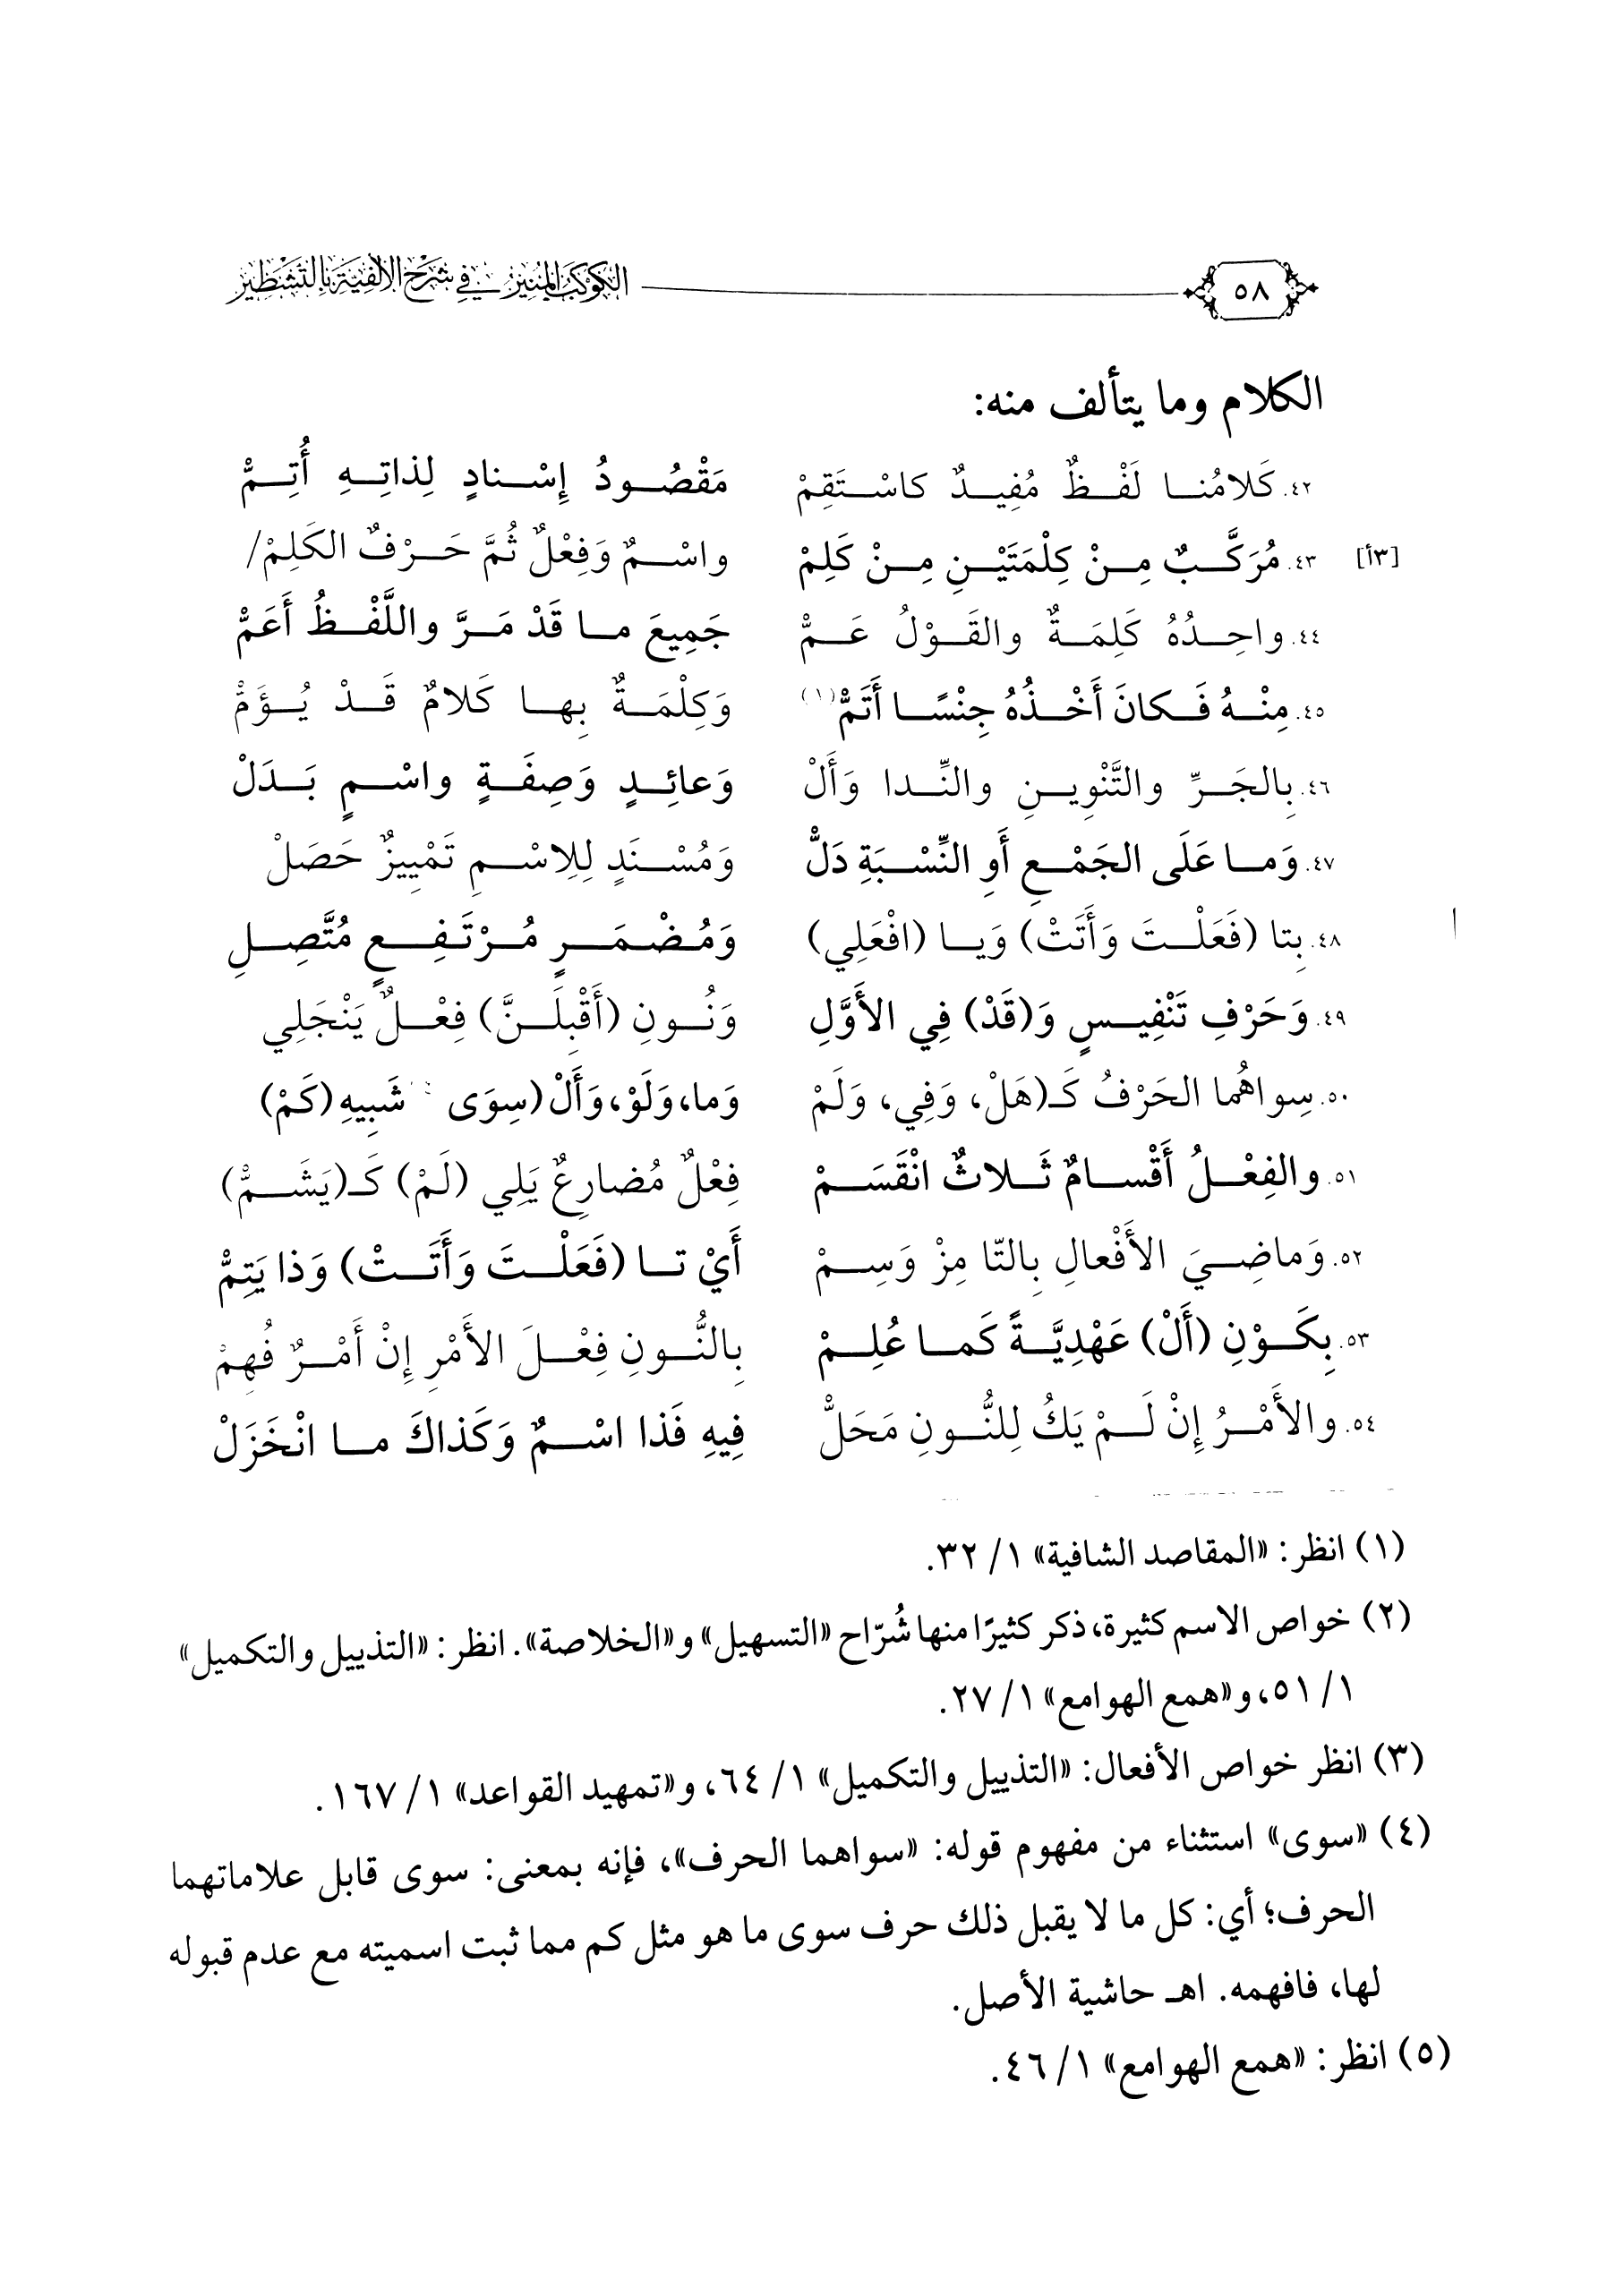 ٥٨ الكوكب المنير في شرح الألفية بالتشطير
الكلام وما يتألف منه:
٤٢. كَلامُنـا لَفْـظٌ مُفِيـدٌ كاسْـتَقِمْ مَقْصُـودُ إِسْـنادٍ لِذاتِـهِ أُتِـمّْ
[٣أ] ٤٣. مُرَكَّـبٌ مِـنْ كِلْمَتَيْـنِ مِـنْ كَلِمْ واسْـمٌ وَفِعْلٌ ثُمَّ حَـرْفٌ الكَلِمْ/
٤٤. واحِـدُهُ كَلِمَـةٌ والقَـوْلُ عَـمّْ جَمِيعَ مـا قَدْ مَـرَّ واللَّفْـظُ أَعَمّْ
٤٥. مِنْـهُ فَـكانَ أَخْـذُهُ جِنْسًـا أَتَمّْ(١) وَكِلْمَـةٌ بِهـا كَلامٌ قَـدْ يُـؤَمّْ
٤٦. بِالجَـرِّ والتَّنْوِيـنِ والنِّـدا وَأَلْ وَعائِـدٍ وَصِفَـةٍ واسْـمٍ بَـدَلْ
٤٧. وَمـا عَلَى الجَمْـعِ أَوِ النِّسْـبَةِ دَلّْ وَمُسْـنَدٍ لِلِاسْـمِ تَمْيِيزٌ حَصَلْ
٤٨. بِتا (فَعَلْـتَ وَأَتَتْ) وَيـا (افْعَلِي) وَمُضْمَـرٍ مُرْتَفِـعٍ مُتَّصِـلِ
٤٩. وَحَرْفِ تَنْفِيـسٍ وَ(قَدْ) فِي الأَوَّلِ وَنُـونِ (أَقْبِلَـنَّ) فِعْـلٌ يَنْجَلِي
٥٠. سِواهُما الحَرْفُ كَـ(هَلْ، وَفِي، وَلَمْ وَما، وَلَوْ، وَأَلْ (سِوَى شَبِيهِ (كَمْ)
٥١. والفِعْـلُ أَقْسـامٌ ثَـلاثٌ انْقَسَـمْ فِعْلٌ مُضارِعٌ يَلِي (لَمْ) كَـ(يَشَـمّْ)
٥٢. وَماضِـيَ الأَفْعالِ بِالتّا مِزْ وَسِـمْ أَيْ تـا (فَعَلْـتَ وَأَتَـتْ) وَذا يَتِمّْ
٥٣. بِكَـوْنِ (أَلْ) عَهْدِيَّـةً كَمـا عُلِـمْ بِالنُّـونِ فِعْـلَ الأَمْرِ إِنْ أَمْـرٌ فُهِمْ
٥٤. والأَمْـرُ إِنْ لَـمْ يَكُ لِلنُّـونِ مَحَلّْ فِيهِ فَذا اسْـمٌ وَكَذاكَ مـا انْخَزَلْ
(١) انظر: «المقاصد الشافية» ١/ ٣٢.
(٢) خواص الاسم كثيرة، ذكر كثيرًا منها شُرّاح «التسهيل» و«الخلاصة». انظر: «التذييل والتكميل»
١/ ٥١، و«همع الهوامع» ١/ ٢٧.
(٣) انظر خواص الأفعال: «التذييل والتكميل» ١/ ٦٤، و«تمهيد القواعد» ١/ ١٦٧.
(٤) «سوى» استثناء من مفهوم قوله: «سواهما الحرف»، فإنه بمعنى: سوى قابل علاماتهما
الحرف؛ أي: كل ما لا يقبل ذلك حرف سوى ما هو مثل كم مما ثبت اسميته مع عدم قبوله
لها، فافهمه. اهـ حاشية الأصل.
(٥) انظر: «همع الهوامع» ١/ ٤٦.